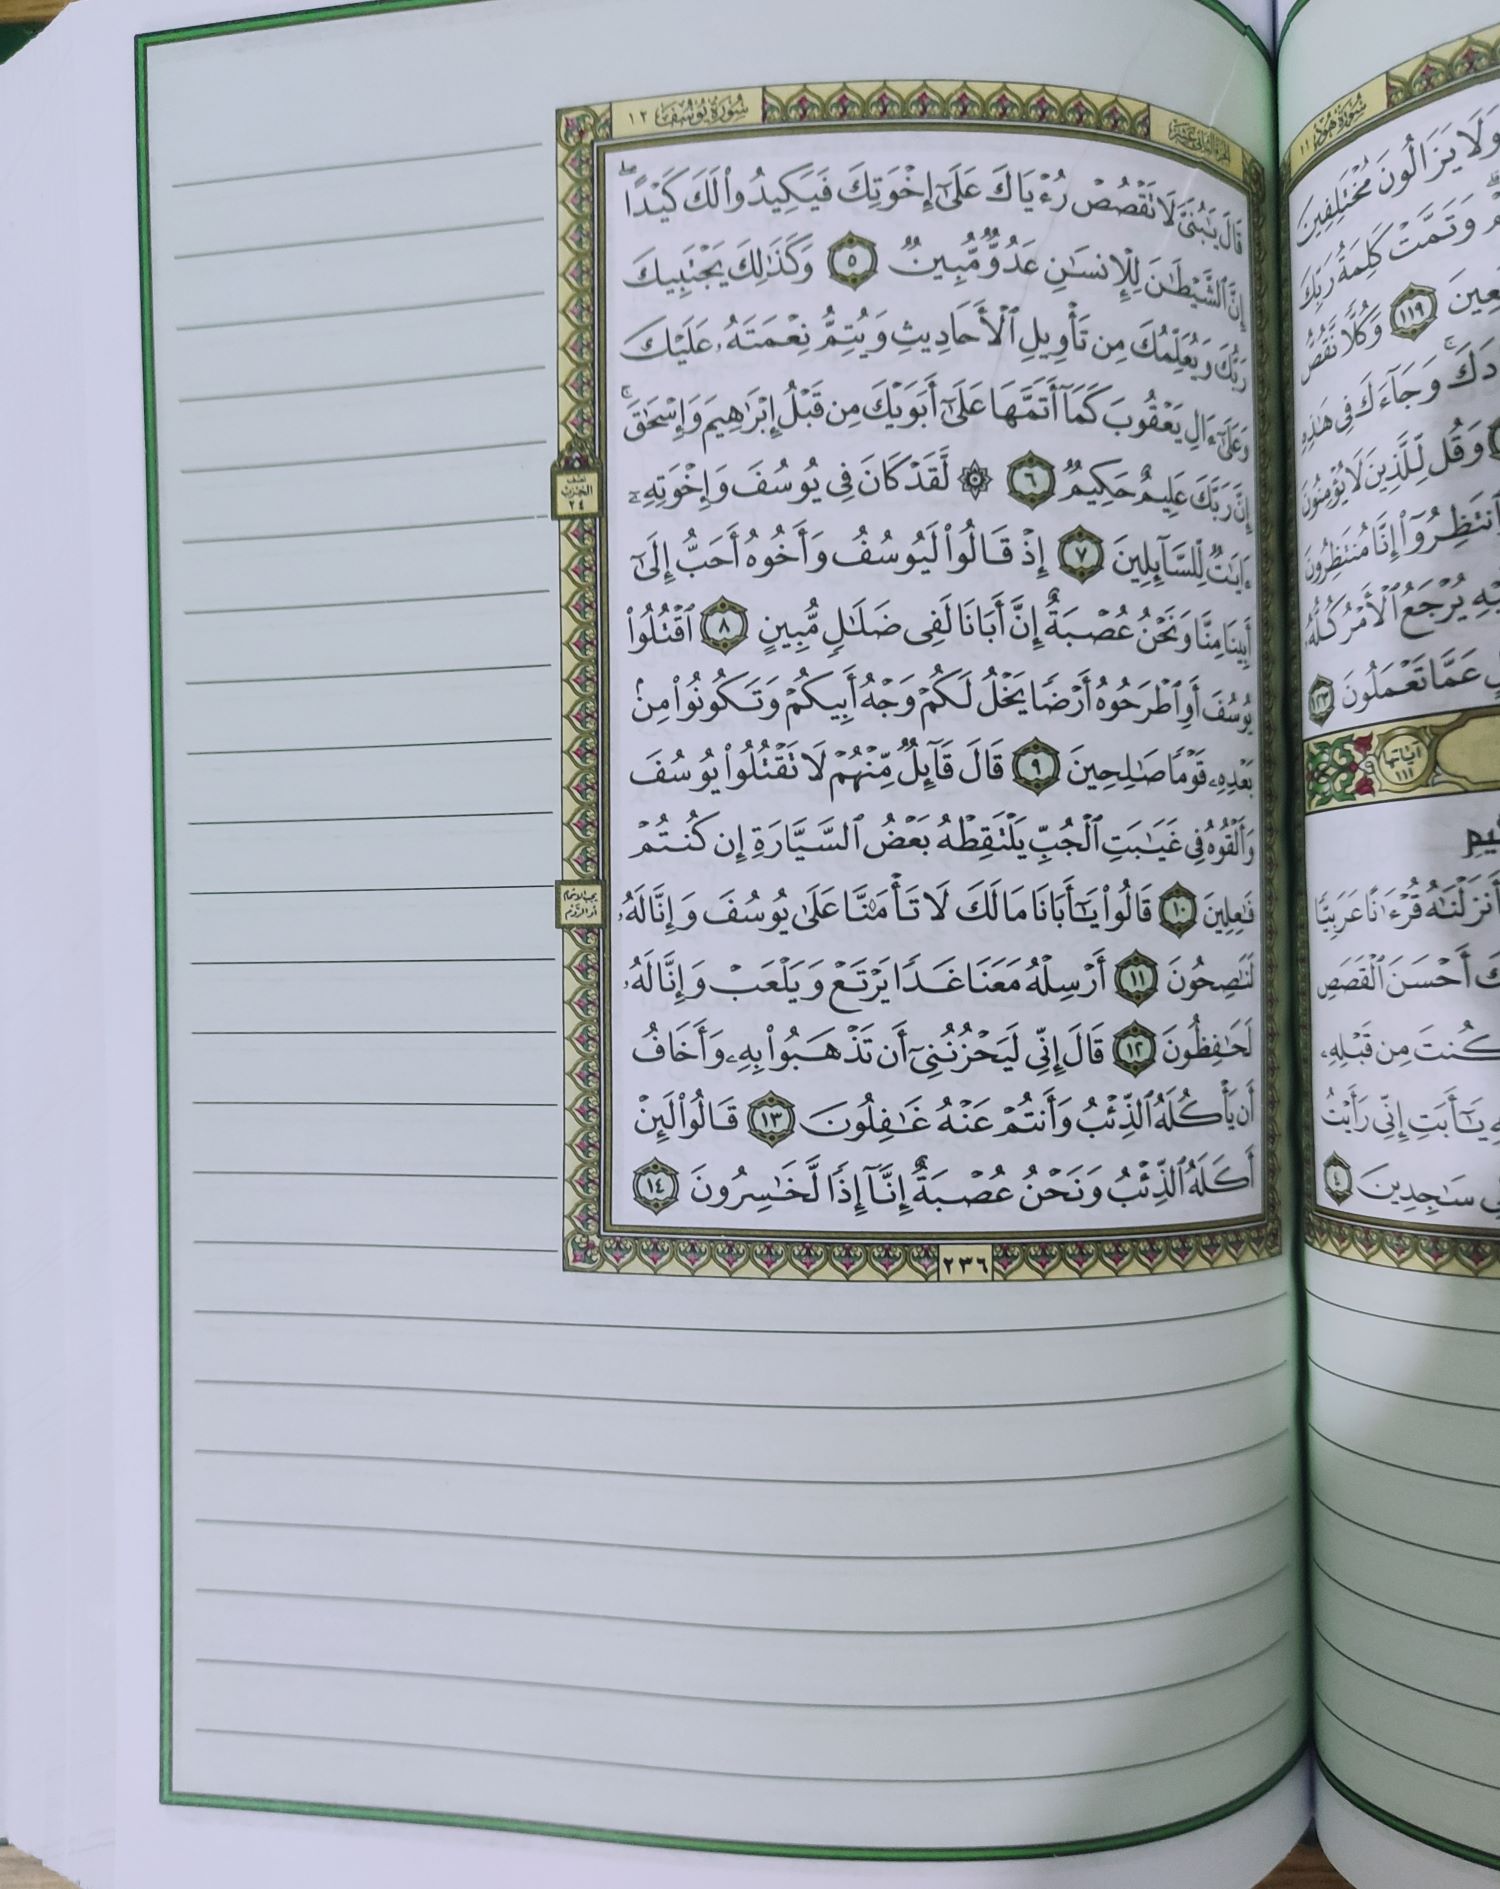 سُورَةُ يُوسُفَ ١٢
الجزء الثاني عشر
قَالَ يَٰبُنَيَّ لَا تَقۡصُصۡ رُءۡيَاكَ عَلَىٰٓ إِخۡوَتِكَ فَيَكِيدُواْ لَكَ كَيۡدًاۖ
إِنَّ ٱلشَّيۡطَٰنَ لِلۡإِنسَٰنِ عَدُوّٞ مُّبِينٞ ٥ وَكَذَٰلِكَ يَجۡتَبِيكَ
رَبُّكَ وَيُعَلِّمُكَ مِن تَأۡوِيلِ ٱلۡأَحَادِيثِ وَيُتِمُّ نِعۡمَتَهُۥ عَلَيۡكَ
وَعَلَىٰٓ ءَالِ يَعۡقُوبَ كَمَآ أَتَمَّهَا عَلَىٰٓ أَبَوَيۡكَ مِن قَبۡلُ إِبۡرَٰهِيمَ وَإِسۡحَٰقَۚ
إِنَّ رَبَّكَ عَلِيمٌ حَكِيمٞ ٦ ۞ لَّقَدۡ كَانَ فِي يُوسُفَ وَإِخۡوَتِهِۦٓ
ءَايَٰتٞ لِّلسَّآئِلِينَ ٧ إِذۡ قَالُواْ لَيُوسُفُ وَأَخُوهُ أَحَبُّ إِلَىٰٓ
أَبِينَا مِنَّا وَنَحۡنُ عُصۡبَةٌ إِنَّ أَبَانَا لَفِي ضَلَٰلٖ مُّبِينٍ ٨ ٱقۡتُلُواْ
يُوسُفَ أَوِ ٱطۡرَحُوهُ أَرۡضٗا يَخۡلُ لَكُمۡ وَجۡهُ أَبِيكُمۡ وَتَكُونُواْ مِنۢ
بَعۡدِهِۦ قَوۡمٗا صَٰلِحِينَ ٩ قَالَ قَآئِلٞ مِّنۡهُمۡ لَا تَقۡتُلُواْ يُوسُفَ
وَأَلۡقُوهُ فِي غَيَٰبَتِ ٱلۡجُبِّ يَلۡتَقِطۡهُ بَعۡضُ ٱلسَّيَّارَةِ إِن كُنتُمۡ
فَٰعِلِينَ ١٠ قَالُواْ يَٰٓأَبَانَا مَا لَكَ لَا تَأۡمَ۬نَّا عَلَىٰ يُوسُفَ وَإِنَّا لَهُۥ
لَنَٰصِحُونَ ١١ أَرۡسِلۡهُ مَعَنَا غَدٗا يَرۡتَعۡ وَيَلۡعَبۡ وَإِنَّا لَهُۥ
لَحَٰفِظُونَ ١٢ قَالَ إِنِّي لَيَحۡزُنُنِيٓ أَن تَذۡهَبُواْ بِهِۦ وَأَخَافُ
أَن يَأۡكُلَهُ ٱلذِّئۡبُ وَأَنتُمۡ عَنۡهُ غَٰفِلُونَ ١٣ قَالُواْ لَئِنۡ
أَكَلَهُ ٱلذِّئۡبُ وَنَحۡنُ عُصۡبَةٌ إِنَّآ إِذٗا لَّخَٰسِرُونَ ١٤
٢٣٦
نصف
الحزب
٢٤
يجب الإشمام
أو الروم
سُورَةُ هُودٍ ١١
وَلَا يَزَالُونَ مُخۡتَلِفِينَ
وَتَمَّتۡ كَلِمَةُ رَبِّكَ
١١٩ وَكُلّٗا نَّقُصُّ
وَجَآءَكَ فِي هَٰذِهِ
وَقُل لِّلَّذِينَ لَا يُؤۡمِنُونَ
ٱنتَظِرُوٓاْ إِنَّا مُنتَظِرُونَ
يُرۡجَعُ ٱلۡأَمۡرُ كُلُّهُۥ
عَمَّا تَعۡمَلُونَ ١٢٣
آياتها
١١١
أَنزَلۡنَٰهُ قُرۡءَٰنًا عَرَبِيّٗا
أَحۡسَنَ ٱلۡقَصَصِ
كُنتَ مِن قَبۡلِهِۦ
يَٰٓأَبَتِ إِنِّي رَأَيۡتُ
سَٰجِدِينَ ٤